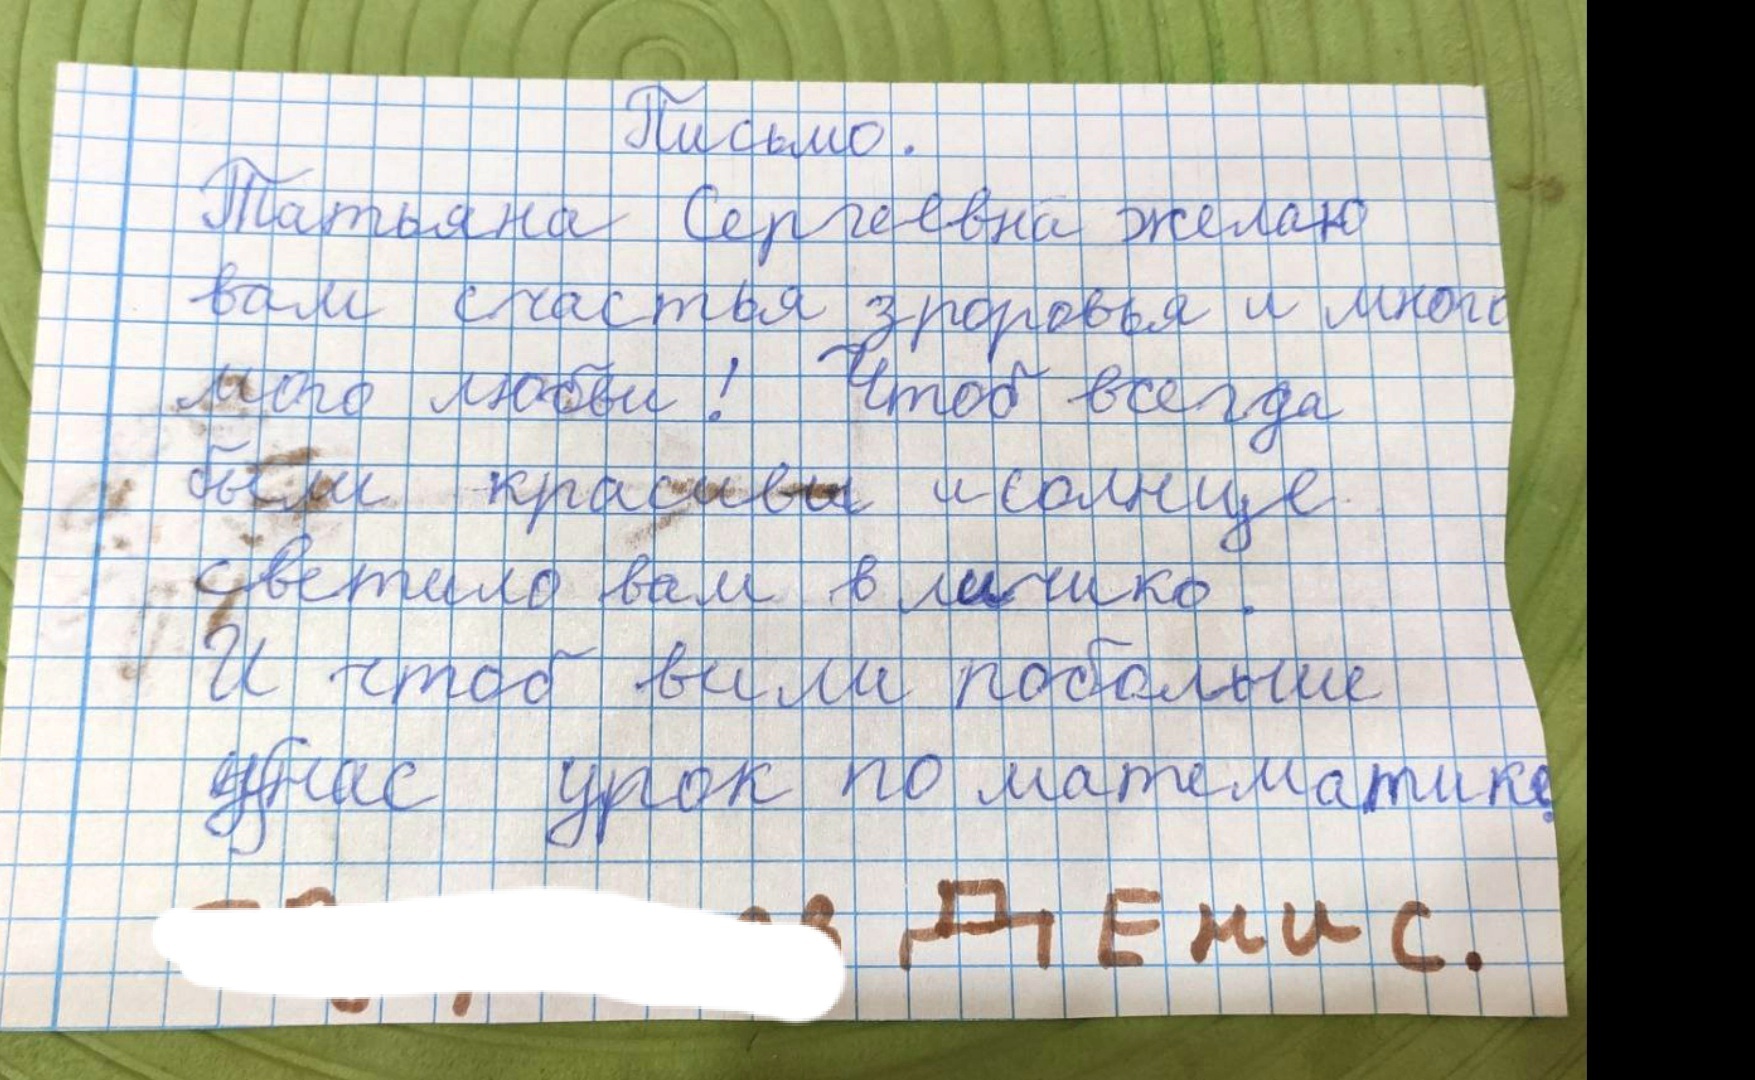 Письмо.
Татьяна Сергеевна желаю
вам счастья зроровья и много
мого любви! Чтоб всегда
были красивы и солнце
светило вам в личико.
И чтоб вили побольше
унас урок по математике.
Денис.